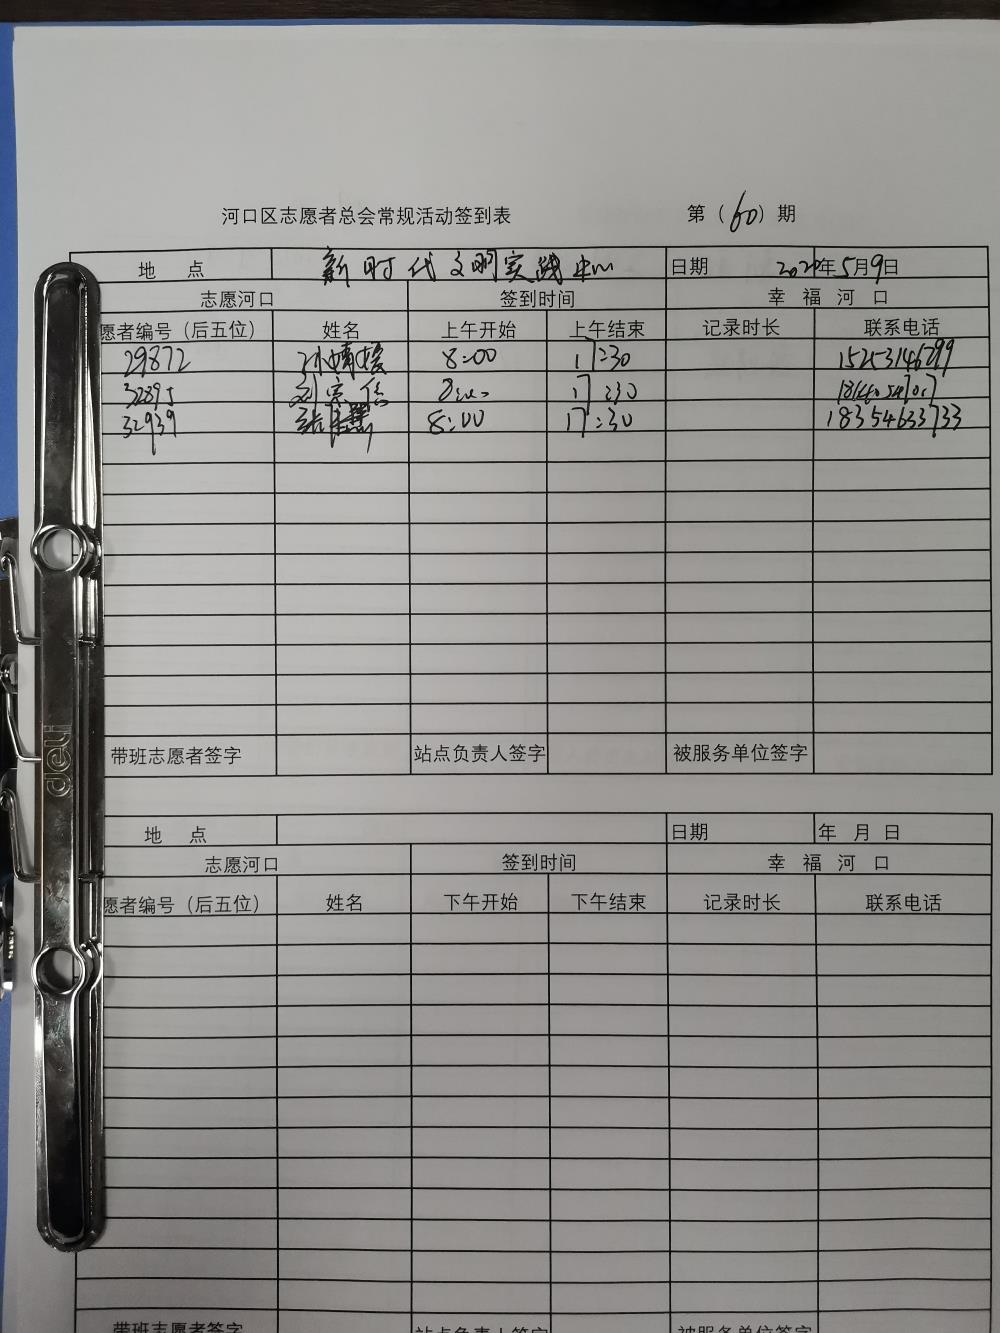 河口区志愿者总会常规活动签到表 第（60）期
地 点 新时代文明实践中心 日期 2020年5月9日
志愿河口 签到时间 幸福河口
愿者编号（后五位） 姓名 上午开始 上午结束 记录时长 联系电话
29872 孙婧媛 8:00 17:30 15253146299
32895 8:00 17:30
32939 8:00 17:30 18354633733
带班志愿者签字 站点负责人签字 被服务单位签字
地 点 日期 年 月 日
志愿河口 签到时间 幸福河口
愿者编号（后五位） 姓名 下午开始 下午结束 记录时长 联系电话
带班志愿者签字 站点负责人签字 被服务单位签字
deli